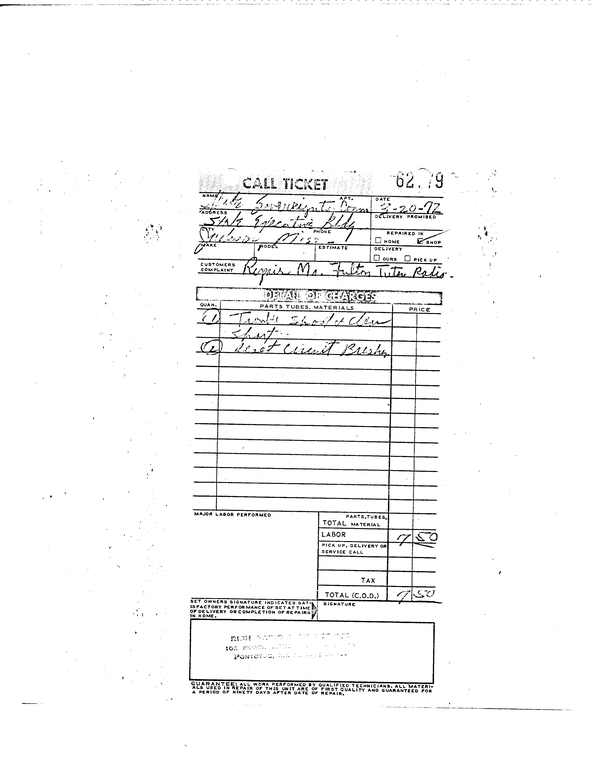 CALL TICKET 62.79
NAME State Sovereignty Comm APT. DATE 3-20-72
ADDRESS State Executive Bldg DELIVERY PROMISED
CITY Miss PHONE REPAIRED IN
HOME SHOP
MAKE MODEL ESTIMATE DELIVERY
OURS PICK UP
CUSTOMERS
COMPLAINT Repair Mr. Fulton Tuten Radio.
DETAIL OF CHARGES
QUAN. PARTS TUBES, MATERIALS PRICE
(1) Trouble Shoot & Clear
Short
(2) Reset Circuit Breaker
MAJOR LABOR PERFORMED PARTS, TUBES,
TOTAL MATERIAL
LABOR 7 50
PICK UP, DELIVERY OR
SERVICE CALL
TAX
TOTAL (C.O.D.) 7 50
SET OWNERS SIGNATURE INDICATES SAT-
ISFACTORY PERFORMANCE OF SET AT TIME
OF DELIVERY OR COMPLETION OF REPAIRS
IN HOME.
SIGNATURE
PONTOTOC,
GUARANTEE: ALL WORK PERFORMED BY QUALIFIED TECHNICIANS. ALL MATERI-
ALS USED IN REPAIR OF THIS UNIT ARE OF FIRST QUALITY AND GUARANTEED FOR
A PERIOD OF NINETY DAYS AFTER DATE OF REPAIR.